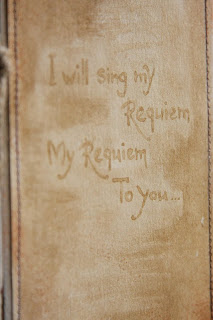 I will sing my
Requiem
My Requiem
To you...